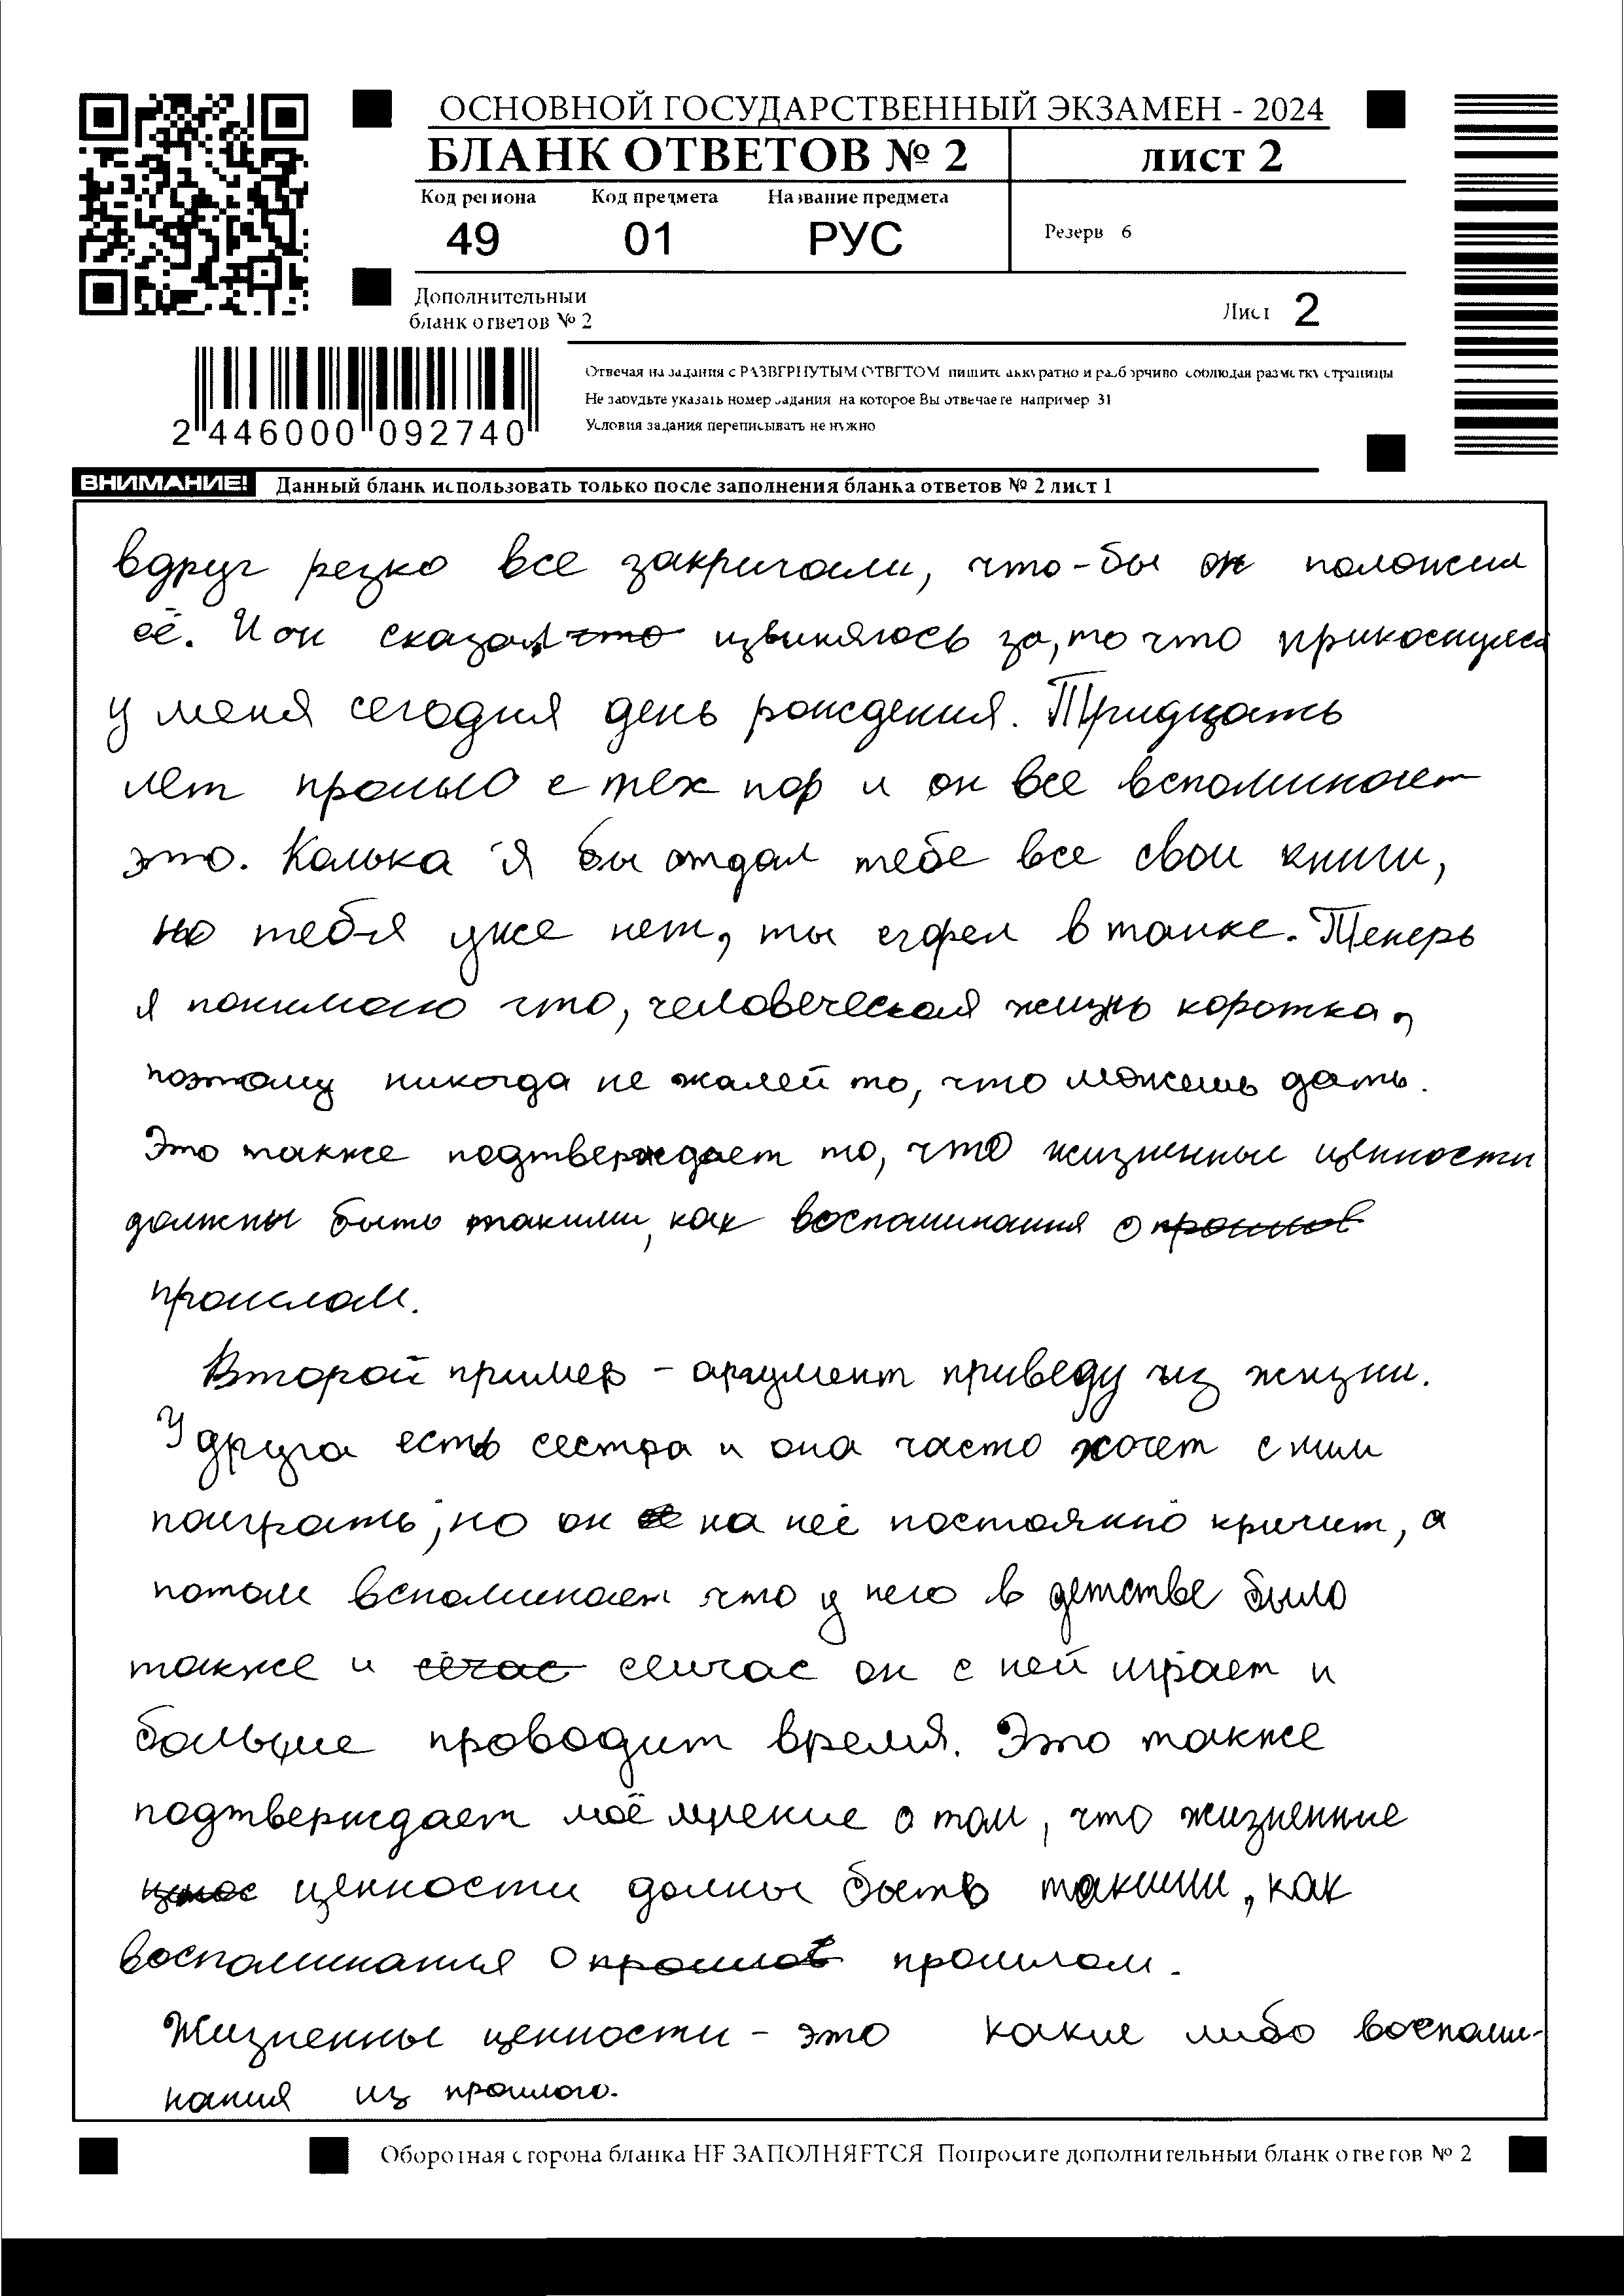 ОСНОВНОЙ ГОСУДАРСТВЕННЫЙ ЭКЗАМЕН - 2024
БЛАНК ОТВЕТОВ № 2
лист 2
Код региона Код предмета Название предмета
49 01 РУС
Резерв 6
Дополнительный
бланк ответов № 2
Лист 2
Отвечая на задания с РАЗВЕРНУТЫМ ОТВЕТОМ пишите аккуратно и разборчиво соблюдая разметку страницы
Не забудьте указать номер задания на которое Вы отвечаете например 31
Условия задания переписывать не нужно
2 446000 092740
ВНИМАНИЕ! Данный бланк использовать только после заполнения бланка ответов № 2 лист 1
вдруг резко все закричали, что-бы он положил
её. И он сказал, что извиняюсь за, то что прикоснулся
у меня сегодня день рождения. Тридцать
лет прошло с тех пор и он все вспоминает
это. Колька я бы отдал тебе все свои книги,
но тебя уже нет, ты сгорел в танке. Теперь
я понимаю что, человеческая жизнь коротка,
поэтому никогда не жалей то, что можешь дать.
Это также подтверждает то, что жизненные ценности
должны быть такими, как воспоминания о прошлов
прошлом.
Второй пример - аргумент приведу из жизни.
У друга есть сестра и она часто хочет с ним
поиграть, но он на неё постоянно кричит, а
потом вспоминает что у него в детстве было
также и сечас сейчас он с ней играет и
больше проводит время. Это также
подтверждает моё мнение о том, что жизненние
ценности должны быть такими, как
воспоминания о прошлов прошлом.
Жизненные ценности - это какие либо воспоми-
нания из прошлого.
Оборотная сторона бланка НЕ ЗАПОЛНЯЕТСЯ Попросите дополнительный бланк ответов № 2